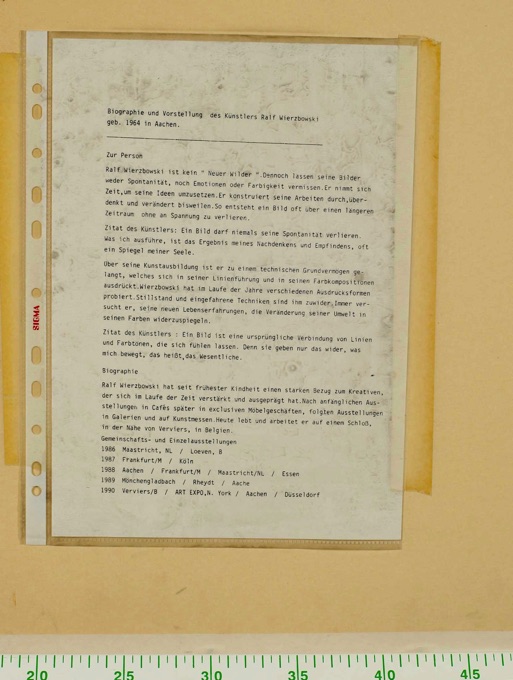 Biographie und Vorstellung des Künstlers Ralf Wierzbowski
geb. 1964 in Aachen.
Zur Person
Ralf Wierzbowski ist kein " Neuer Wilder ".Dennoch lassen seine Bilder
weder Spontanität, noch Emotionen oder Farbigkeit vermissen.Er nimmt sich
Zeit,um seine Ideen umzusetzen.Er konstruiert seine Arbeiten durch,über-
denkt und verändert bisweilen.So entsteht ein Bild oft über einen längeren
Zeitraum ohne an Spannung zu verlieren.
Zitat des Künstlers: Ein Bild darf niemals seine Spontanität verlieren.
Was ich ausführe, ist das Ergebnis meines Nachdenkens und Empfindens, oft
ein Spiegel meiner Seele.
Über seine Kunstausbildung ist er zu einem technischen Grundvermögen ge-
langt, welches sich in seiner Linienführung und in seinen Farbkompositionen
ausdrückt.Wierzbowski hat im Laufe der Jahre verschiedenen Ausdrucksformen
probiert.Stillstand und eingefahrene Techniken sind ihm zuwider.Immer ver-
sucht er, seine neuen Lebenserfahrungen, die Veränderung seiner Umwelt in
seinen Farben widerzuspiegeln.
Zitat des Künstlers : Ein Bild ist eine ursprüngliche Verbindung von Linien
und Farbtönen, die sich fühlen lassen. Denn sie geben nur das wider, was
mich bewegt, das heißt,das Wesentliche.
Biographie
Ralf Wierzbowski hat seit frühester Kindheit einen starken Bezug zum Kreativen,
der sich im Laufe der Zeit verstärkt und ausgeprägt hat.Nach anfänglichen Aus-
stellungen in Cafés später in exclusiven Möbelgeschäften, folgten Ausstellungen
in Galerien und auf Kunstmessen.Heute lebt und arbeitet er auf einem Schloß,
in der Nähe von Verviers, in Belgien.
Gemeinschafts- und Einzelausstellungen
1986 Maastricht, NL / Loeven, B
1987 Frankfurt/M / Köln
1988 Aachen / Frankfurt/M / Maastricht/NL / Essen
1989 Mönchengladbach / Rheydt / Aache
1990 Verviers/B / ART EXPO,N. York / Aachen / Düsseldorf
SIGMA
20 25 30 35 40 45